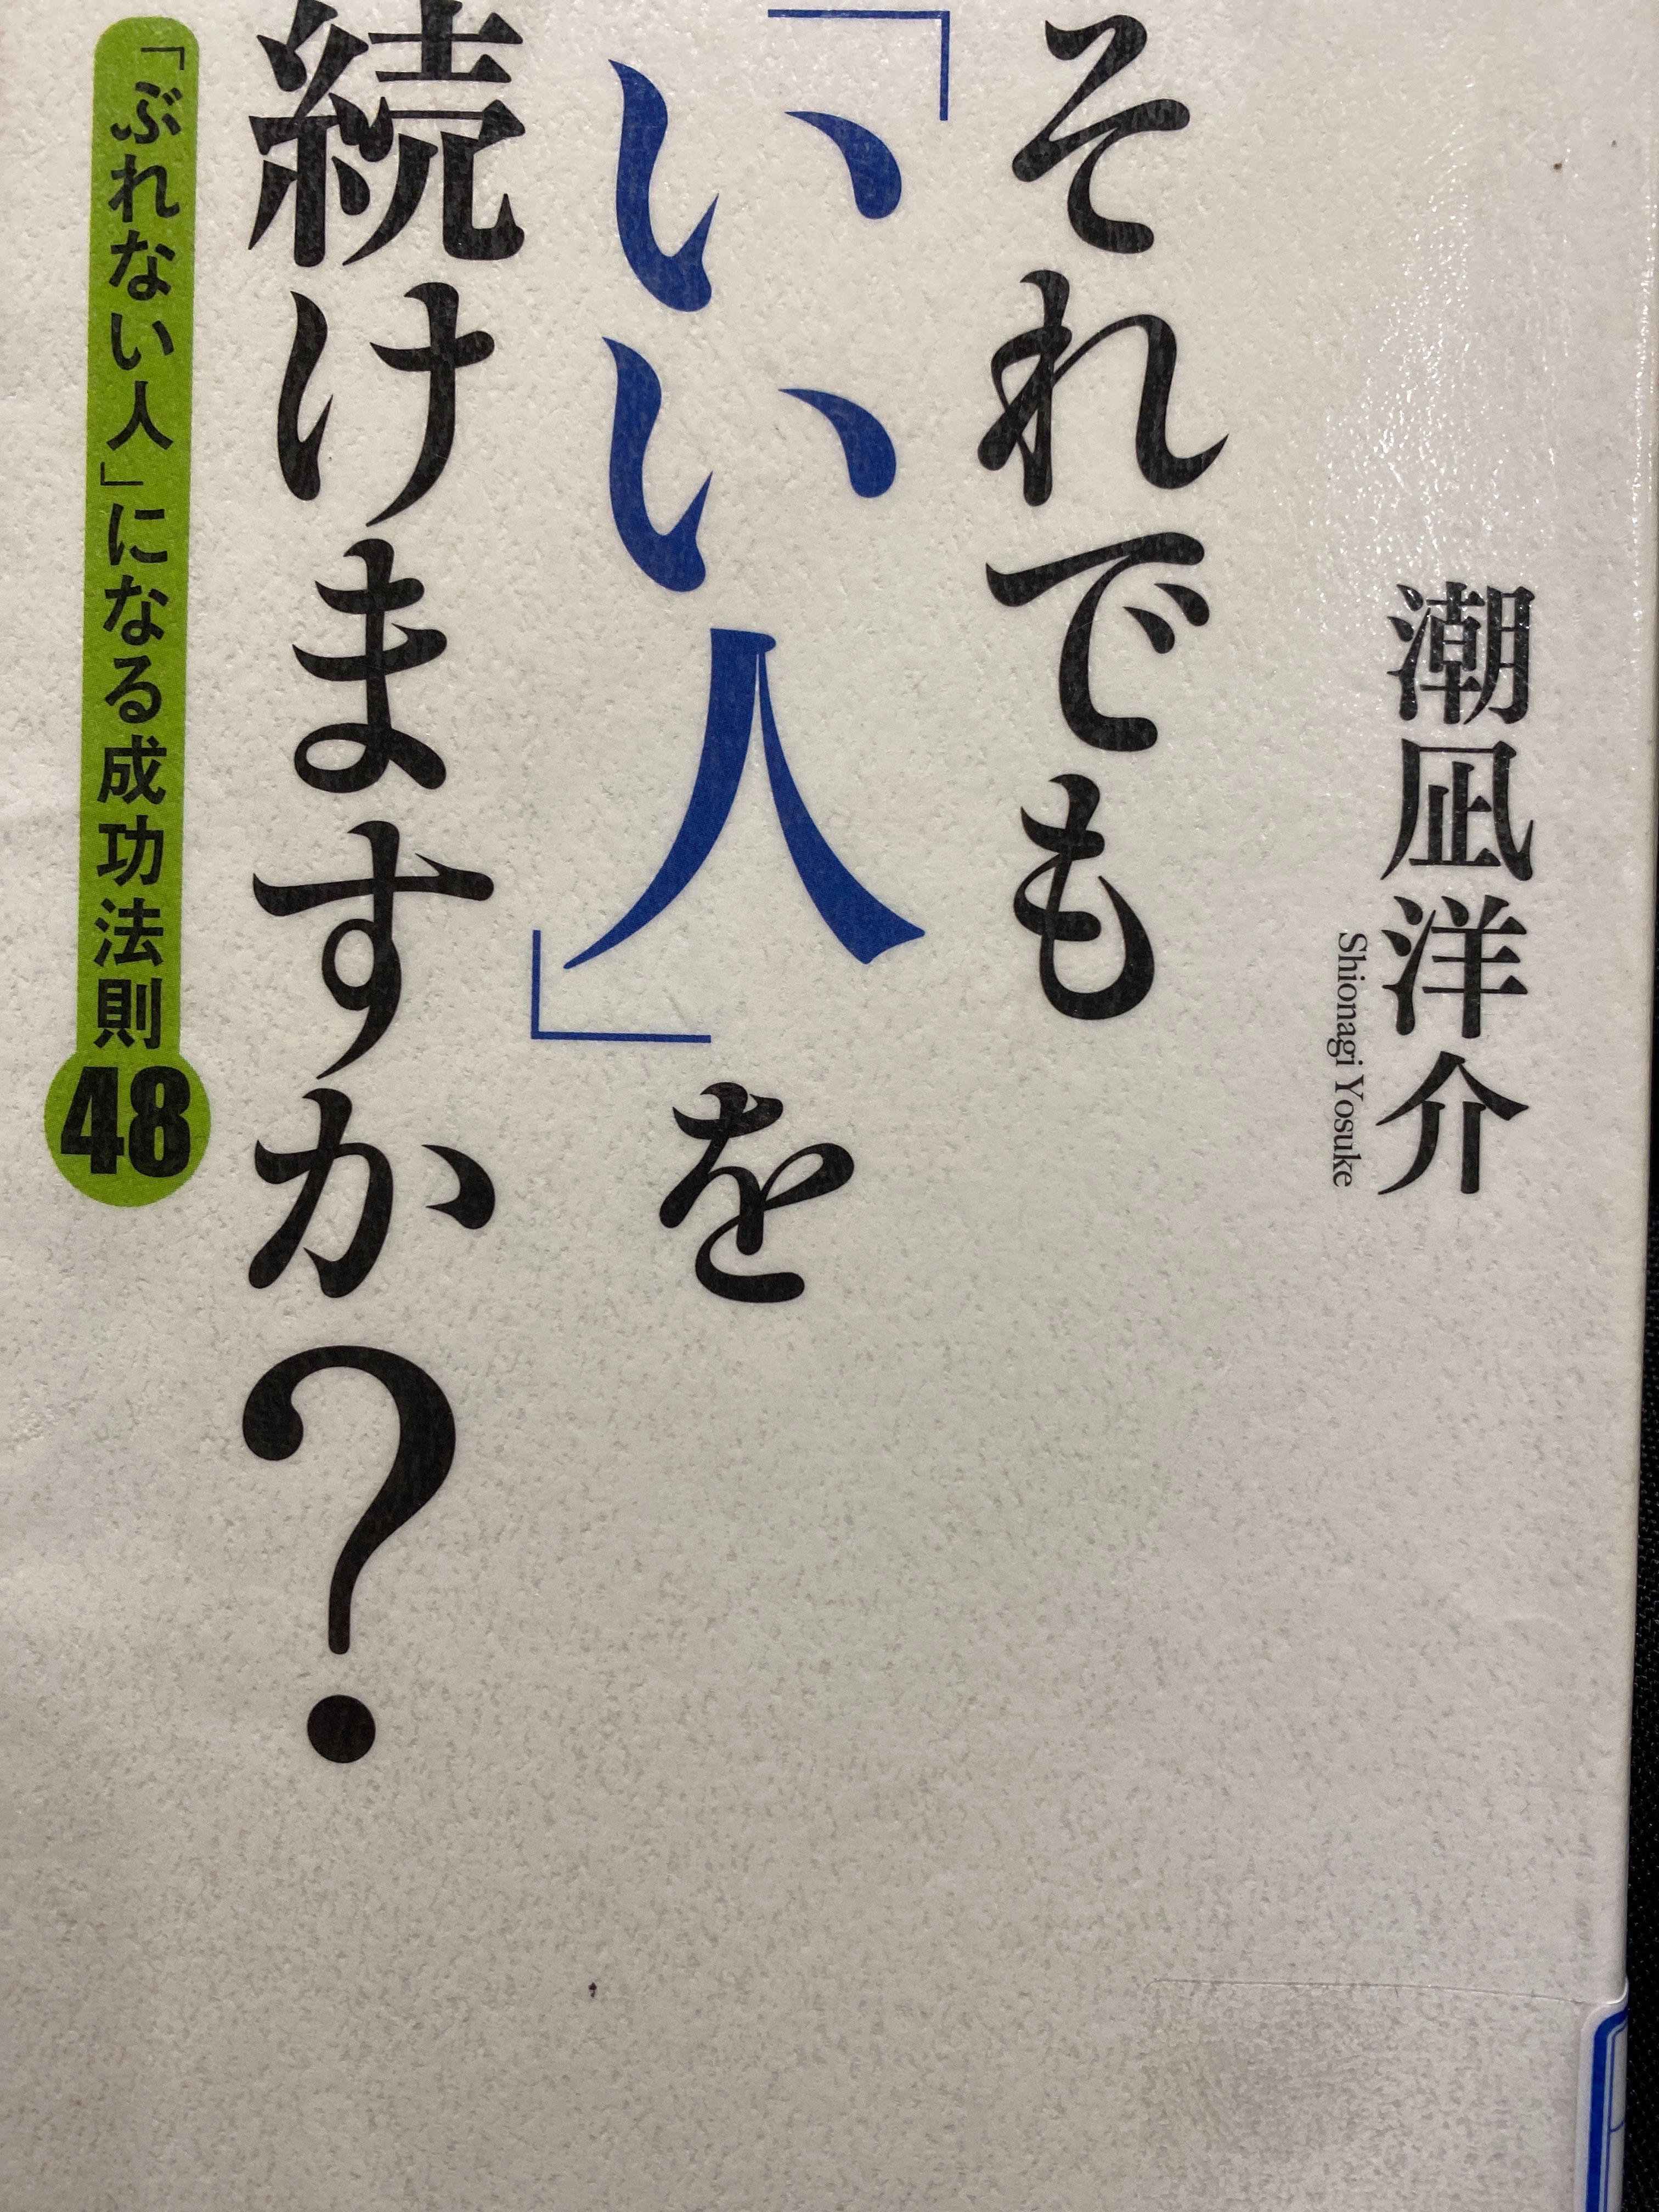 潮凪洋介
Shionagi Yosuke
それでも
「いい人」を
続けますか?
「ぶれない人」になる成功法則48